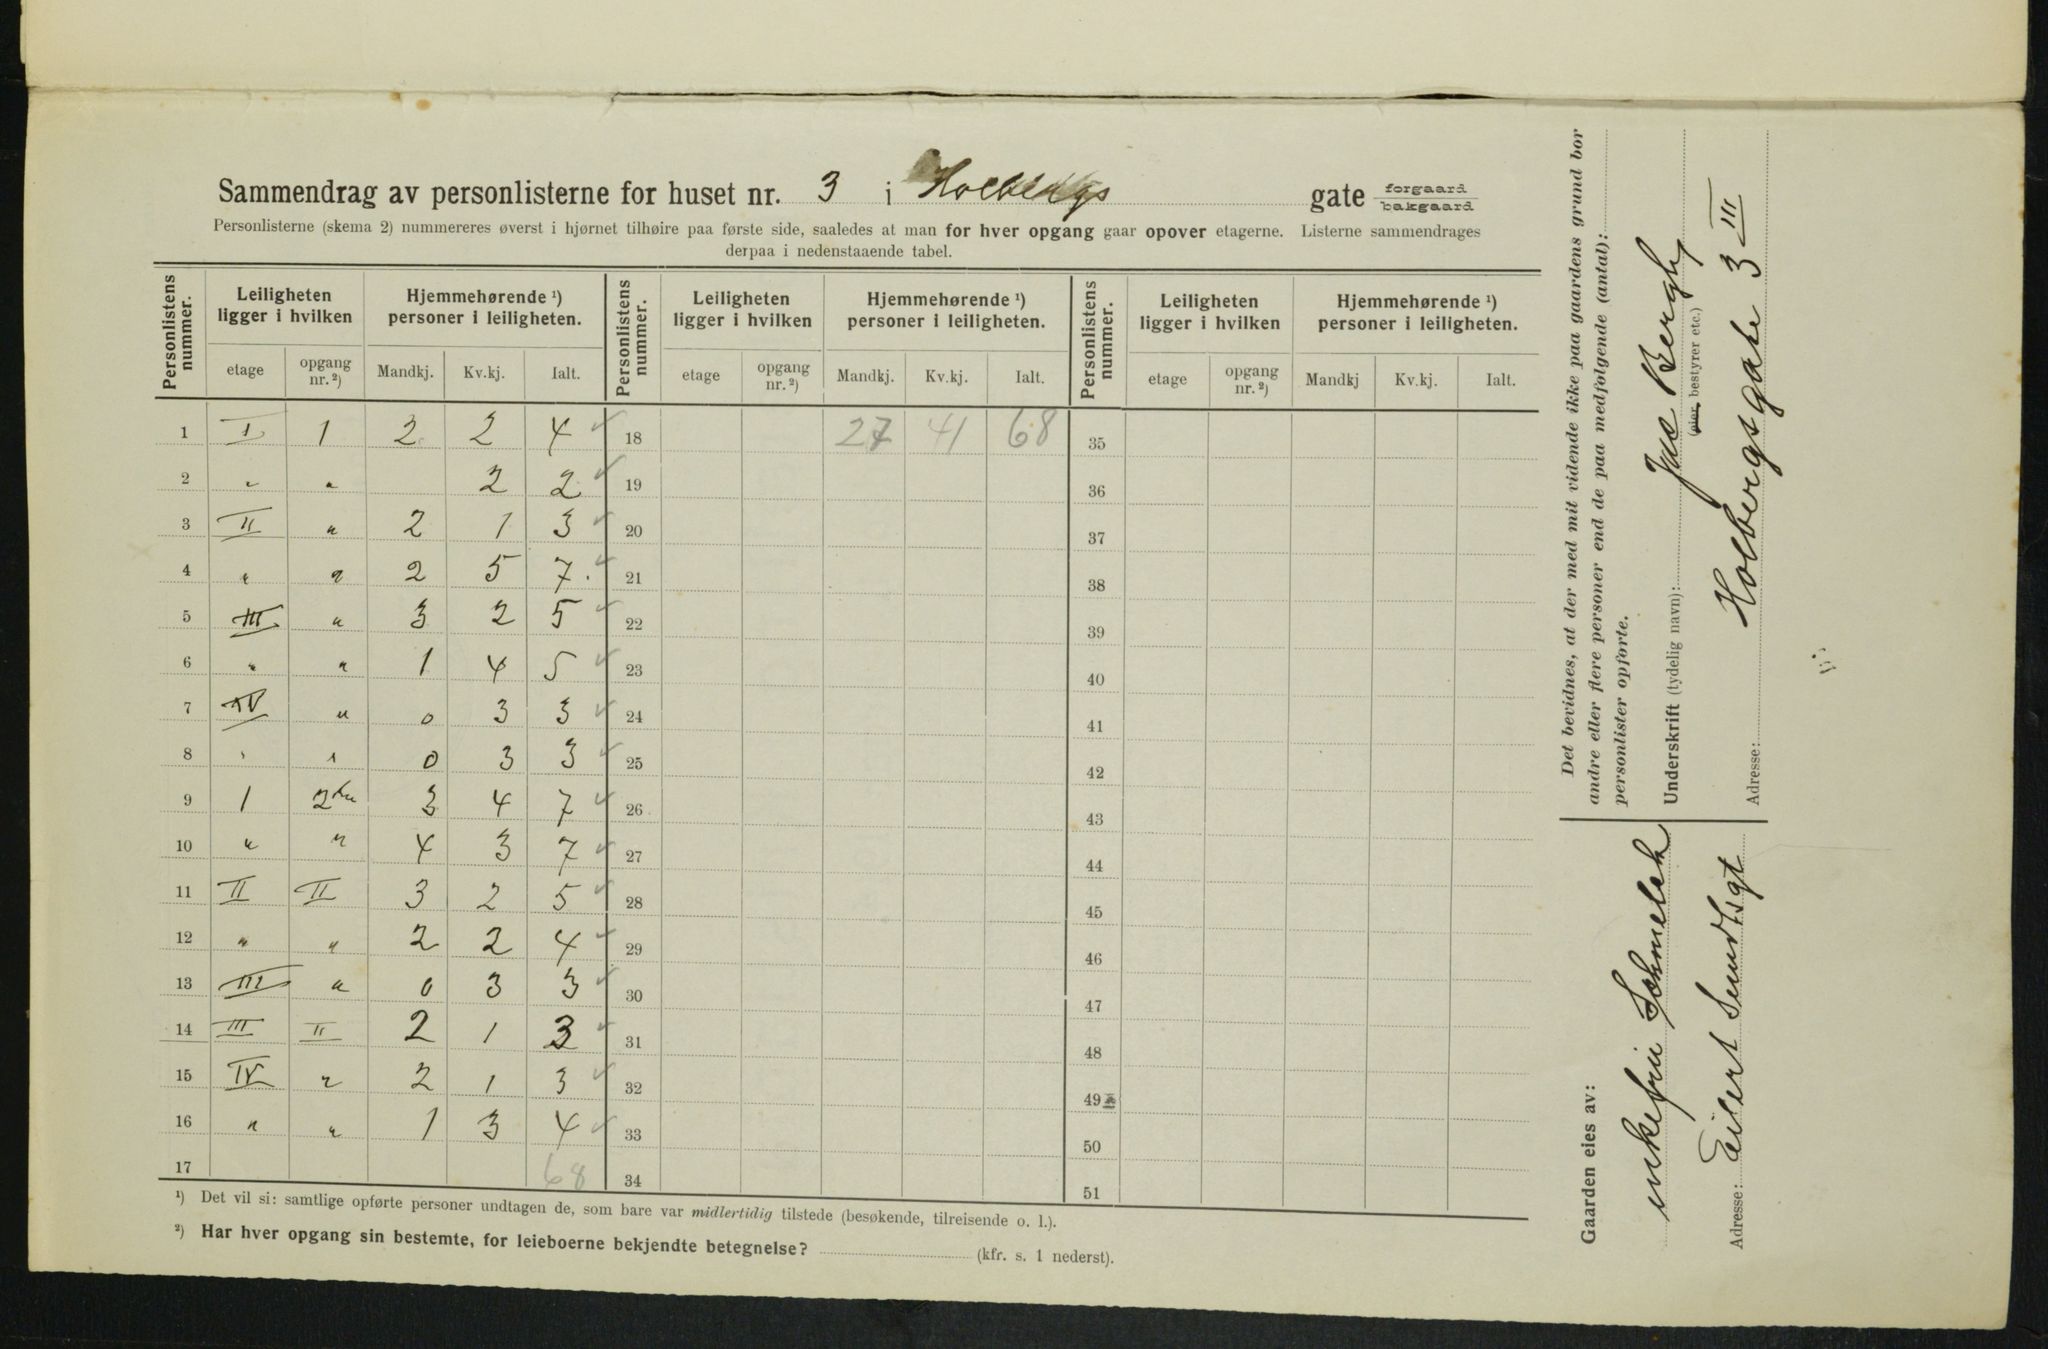 Sammendrag av personlisterne for huset nr. 3 i Holbergs gate forgaard bakgaard
Personlisterne (skema 2) nummereres øverst i hjørnet tilhøire paa første side, saaledes at man for hver opgang gaar opover etagerne. Listerne sammendrages
derpaa i nedenstaaende tabel.
Personlistens nummer. Leiligheten ligger i hvilken Hjemmehørende ¹) personer i leiligheten. Personlistens nummer. Leiligheten ligger i hvilken Hjemmehørende ¹) personer i leiligheten. Personlistens nummer. Leiligheten ligger i hvilken Hjemmehørende ¹) personer i leiligheten.
etage opgang nr. ²) Mandkj. Kv.kj. Ialt. etage opgang nr. ²) Mandkj. Kv.kj. Ialt. etage opgang nr. ²) Mandkj Kv.kj. Ialt.
1 I 1 2 2 4 18 27 41 68 35
2 " " 2 2 19 36
3 II " 2 1 3 20 37
4 " " 2 5 7. 21 38
5 III " 3 2 5 22 39
6 " " 1 4 5 23 40
7 IV " 0 3 3 24 41
8 " " 0 3 3 25 42
9 1 2 3 4 7 26 43
10 " " 4 3 7 27 44
11 II II 3 2 5 28 45
12 " " 2 2 4 29 46
13 III " 0 3 3 30 47
14 III II 2 1 3 31 48
15 IV " 2 1 3 32 49
16 " " 1 3 4 33 50
17 68 34 51
¹) Det vil si: samtlige opførte personer undtagen de, som bare var midlertidig tilstede (besøkende, tilreisende o. l.).
²) Har hver opgang sin bestemte, for leieboerne bekjendte betegnelse? (kfr. s. 1 nederst).
Det bevidnes, at der med mit vidende ikke paa gaardens grund bor
andre eller flere personer end de paa medfølgende (antal):
personlister opførte.
Underskrift (tydelig navn): Jac Bergh
(eier, bestyrer etc.)
Adresse: Holbergsgade 3 III
Gaarden eies av:
enkefru Schmelck
Adresse: Eilert Sundtsgt